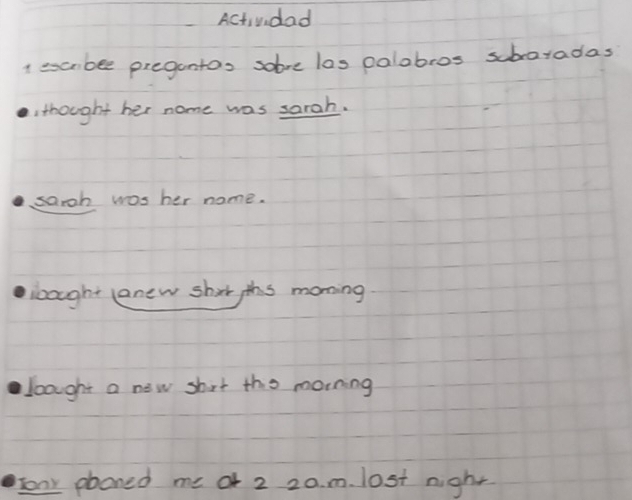 Actividad
1 escribee preguntas sobre las palabras subrayadas
• ithought her name was sarah.
• sarah was her name.
• ibought (anew shirt)this morning
• Ibought a new shirt this morning
• Tony phoned me at 2 2a.m. last night